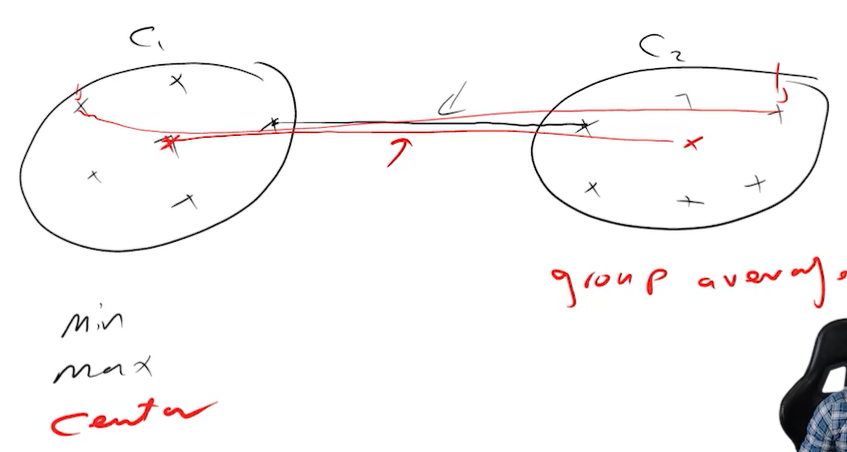 C₁
C₂
group average
Min
max
Center